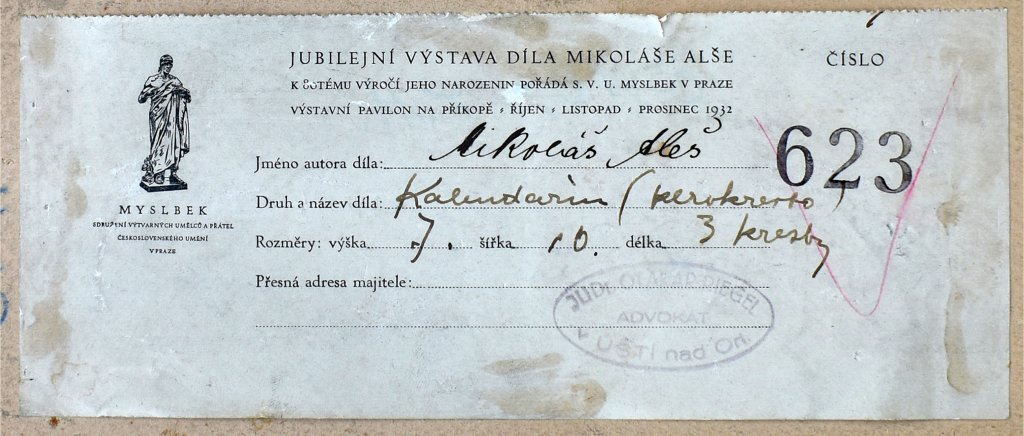 JUBILEJNÍ VÝSTAVA DÍLA MIKOLÁŠE ALŠE
K 80TÉMU VÝROČÍ JEHO NAROZENIN POŘÁDÁ S. V. U. MYSLBEK V PRAZE
VÝSTAVNÍ PAVILON NA PŘÍKOPĚ - ŘÍJEN - LISTOPAD - PROSINEC 1932
ČÍSLO
623
MYSLBEK
SDRUŽENÍ VÝTVARNÝCH UMĚLCŮ A PŘÁTEL
ČESKOSLOVENSKÉHO UMĚNÍ
V PRAZE
Jméno autora díla: Mikoláš Aleš
Druh a název díla: Kalendarium (perokresba)
Rozměry: výška 7. šířka 10. délka 3 kresby
Přesná adresa majitele:
JUDr. OTAKAR
ADVOKÁT
V ÚSTÍ nad Orl.